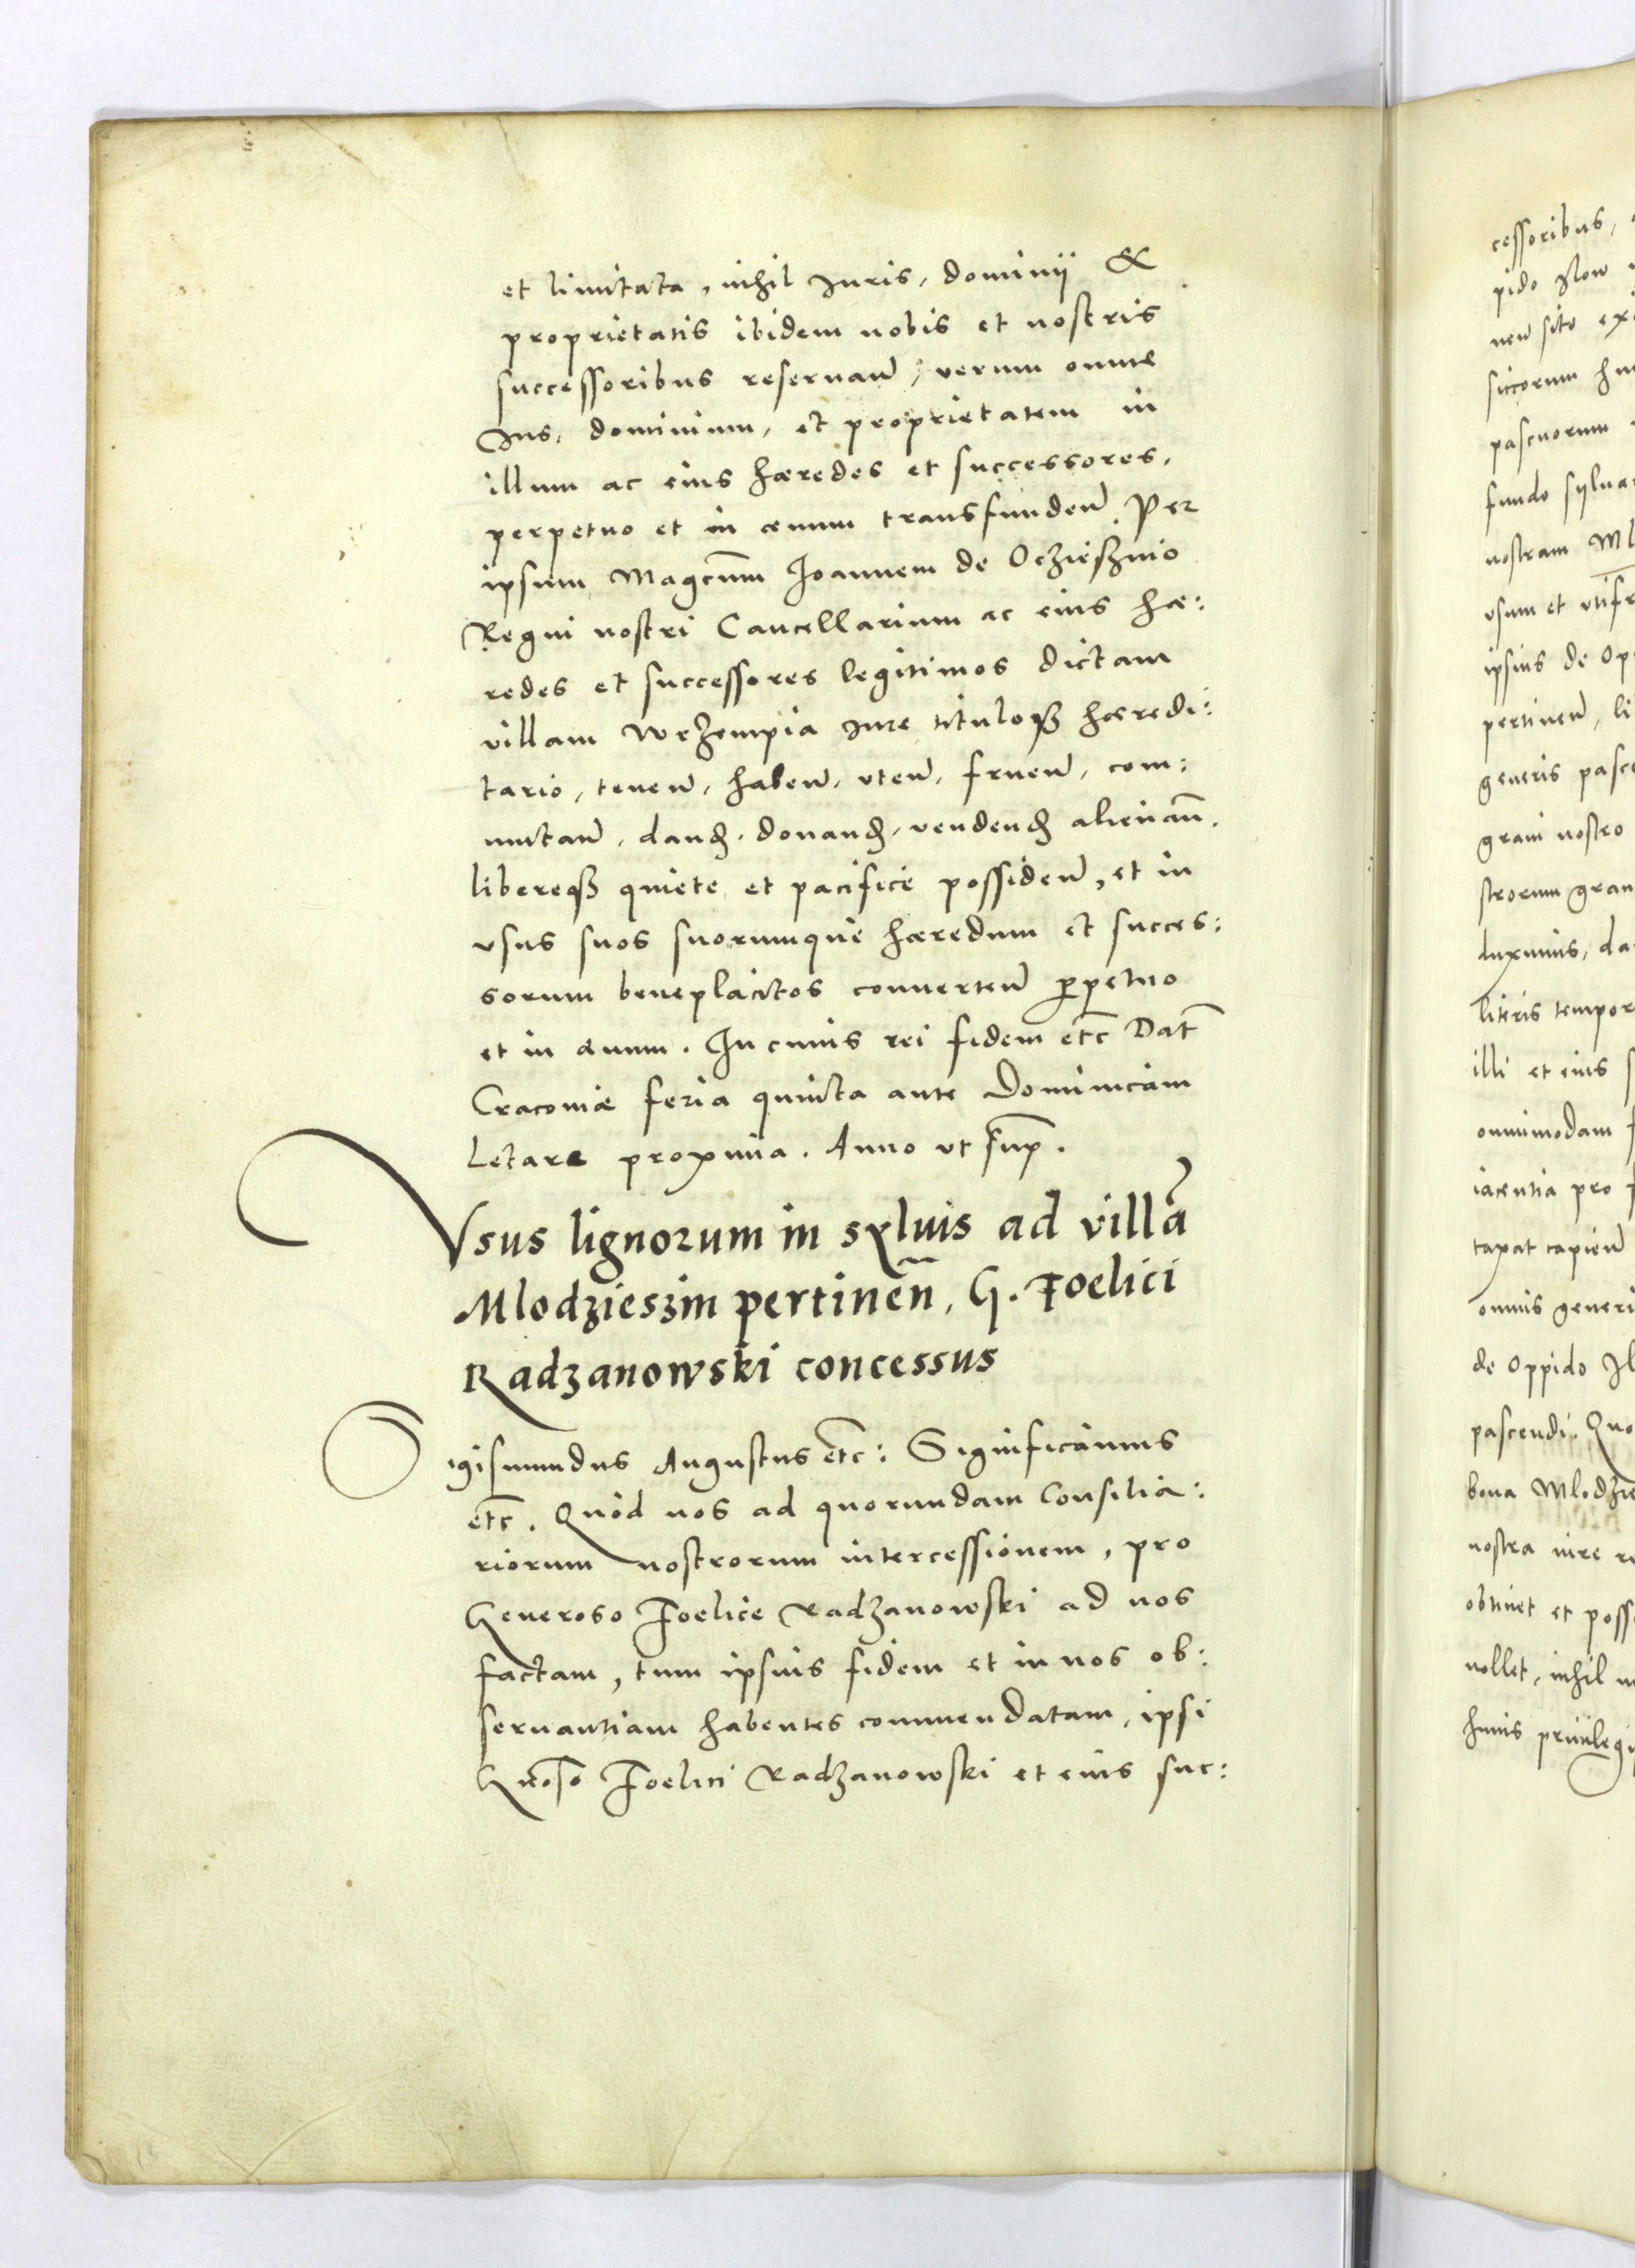 et limitata, nihil Iuris, dominii &
proprietatis ibidem nobis et nostris
successoribus reseruan̄, verum omne
Ius, dominium, et proprietatem in
illum ac eius hæredes et successores,
perpetuo et in æuum transfunden̄. Per
ipsum Magcum̄ Ioannem de Oczieszsnio
Regni nostri Cancellarium ac eius hæ:
redes et successores legitimos dictam
villam Wrzempia Iure tituloqꝫ hæredi:
tario, tenen̄, haben̄, vten̄, fruen̄, com:
mutan̄, dandꝫ, donandꝫ, vendendꝫ alienan̄.
libereqꝫ quiete et pacifice possiden̄, et in
vsus suos suorumque hæredum et succes:
sorum beneplacitos conuerten̄ ꝑpetuo
et in æuum. In cuius rei fidem etc̄ Dat̄
Cracoviæ feria quinta ante Dominicam
Letare proxima. Anno ut sup̄.
Vsus lignorum in syluis ad villā
Mlodzieszin pertinen̄, G. Foelici
Radzanowski concessus
Sigismundus Augustus etc̄: Significamus
etc̄. Quod nos ad quorundam Consilia:
riorum nostrorum intercessionem, pro
Generoso Foelice Radzanowski ad nos
factam, tum ipsius fidem et in nos ob:
seruantiam habentes commendatam, ipsi
Gn̄oso Foelici Radzanowski et eius suc:
cessoribus,
pido Ilow
nen̄ sito
siccorum
pascuorum
fundo sylua
nostram Ml
vsum et vtifr
ipsius de Op
pertinen̄, li
generis pasc
grani nostro
strorum gran
duximus, da
literis tempor
illi et eius
omnimodam
iacentia pro
taxat capien̄
omnis generi
de Oppido Il
pascendi. Quo
bona Mlodzie
nostra iure re
obtinet et poss
nollet, nihil
huius priuilegi